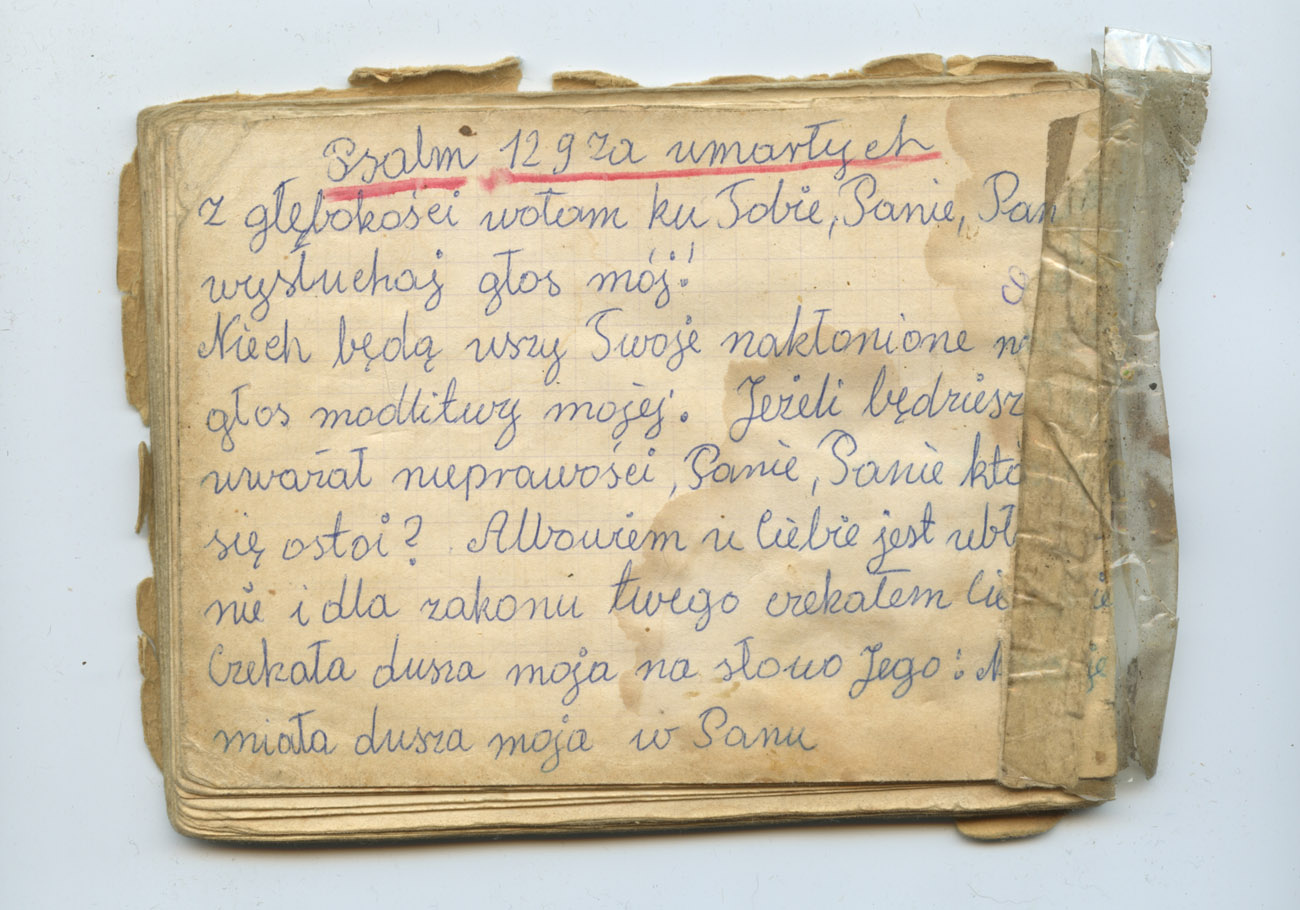 Psalm 129 za umarłych
Z głębokości wołam ku Tobie, Panie, Pan
wysłuchaj głos mój!
Niech będą uszy Twoje nakłonione
głos modlitwy mojej. Jeżeli będziesz
uważał nieprawości, Panie, Panie któ
się ostoi? Albowiem u Ciebie jest ubł
nie i dla zakonu twego czekałem Cie
Czekała dusza moja na słowo Jego:
miała dusza moja w Panu